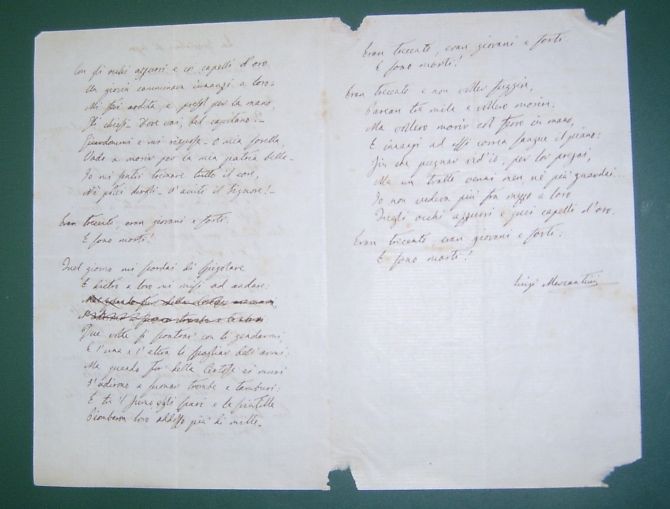 Con gli occhi azzurri e coi capelli d'oro
Un giovin camminava innanzi a loro.
Mi feci ardita, e presol per la mano,
Gli chiesi: Dove vai, bel capitano?
Guardommi e mi rispose: O mia sorella,
Vado a morir per la mia patria bella.
Io mi sentii tremare tutto il core,
Nè potei dirgli: V'aiuti il Signore!
Eran trecento, eran giovani e forti:
E sono morti!
Quel giorno mi scordai di spigolare
E dietro a loro mi misi ad andare:
Due volte si scontrar con li gendarmi,
E l'una e l'altra li spogliar dell'armi:
Ma quando fur della Certosa ai muri
S'udirono a suonar trombe e tamburi:
E tra il fumo e gli spari e le scintille
Piombaron loro addosso più di mille.
Eran trecento, eran giovani e forti:
E sono morti!
Eran trecento e non voller fuggire,
Parean tre mila e vollero morire:
Ma vollero morir col ferro in mano,
E innanzi ad essi correa sangue il piano:
Fin che pugnar vid'io, per lor pregai,
Ma un tratto venni men nè più guardai:
Io non vedeva più fra mezzo a loro
Quegli occhi azzurri e quei capelli d'oro.
Eran trecento, eran giovani e forti:
E sono morti!
Luigi Mercantini